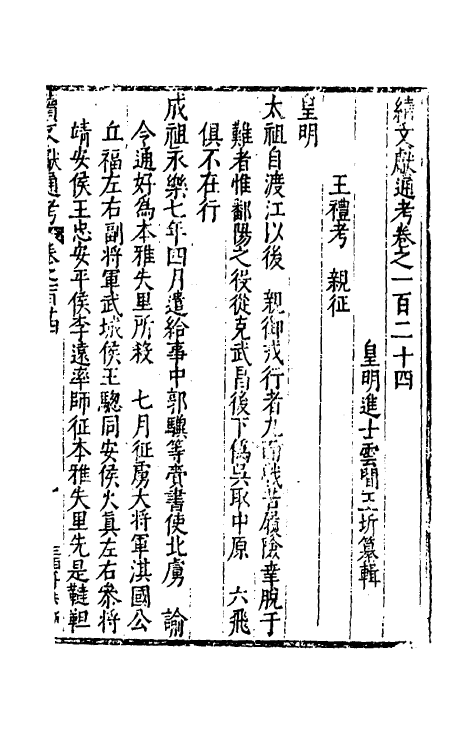 續文獻通考卷之一百二十四
皇明進士雲間王圻纂輯
王禮考 親征
皇明
太祖自渡江以後 親御戎行者九而戰苦履險幸脫于
難者惟鄱陽之役從克武昌後下僞吳取中原 六飛
俱不在行
成祖永樂七年四月遣給事中郭驥等賫書使北虜 諭
今通好為本雅失里所殺 七月征虜大將軍淇國公
丘福左右副將軍武城侯王聰同安侯火真左右叅將
靖安侯王忠安平侯李遠率師征本雅失里先是韃靼
續文獻通考 卷之一百廿四